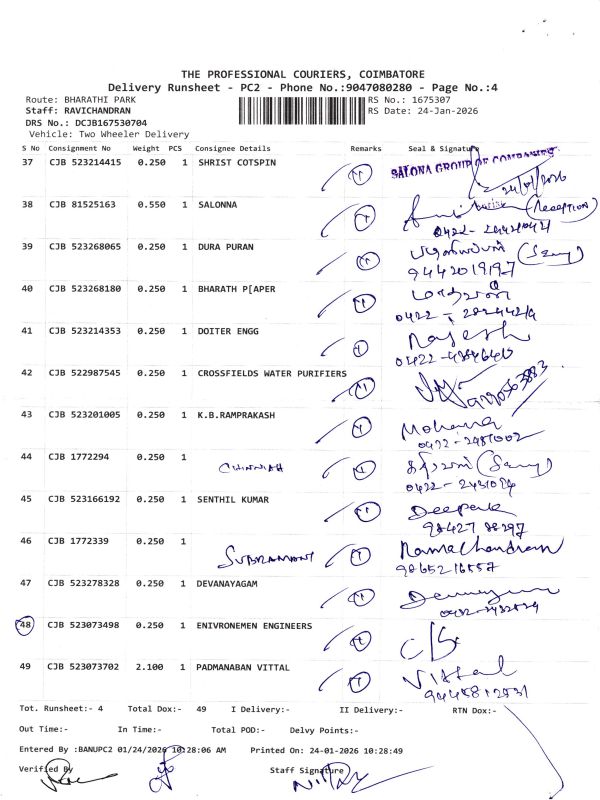 THE PROFESSIONAL COURIERS, COIMBATORE
Delivery Runsheet - PC2 - Phone No.:9047080280 - Page No.:4
Route: BHARATHI PARK RS No.: 1675307
Staff: RAVICHANDRAN RS Date: 24-Jan-2026
DRS No.: DCJB167530704
Vehicle: Two Wheeler Delivery
S No Consignment No Weight PCS Consignee Details Remarks Seal & Signature
37 CJB 523214415 0.250 1 SHRIST COTSPIN 11 SALONA GROUP OF COMPANIES
24/01/2026
38 CJB 81525163 0.550 1 SALONNA 11 (Reception)
39 CJB 523268065 0.250 1 DURA PURAN 11
9442019197
40 CJB 523268180 0.250 1 BHARATH P[APER 11
41 CJB 523214353 0.250 1 DOITER ENGG 11 Rajesh
42 CJB 522987545 0.250 1 CROSSFIELDS WATER PURIFIERS 11
43 CJB 523201005 0.250 1 K.B.RAMPRAKASH 11 Mohana
0422-2481002
44 CJB 1772294 0.250 1 CHINNIAH 11
45 CJB 523166192 0.250 1 SENTHIL KUMAR 11 Deepak
98427 88297
46 CJB 1772339 0.250 1 SUBRAMANI 11 Ramachandran
9865216557
47 CJB 523278328 0.250 1 DEVANAYAGAM 11
48 CJB 523073498 0.250 1 ENIVRONEMEN ENGINEERS 11
49 CJB 523073702 2.100 1 PADMANABAN VITTAL 11 Vittal
9445812531
Tot. Runsheet:- 4 Total Dox:- 49 I Delivery:- II Delivery:- RTN Dox:-
Out Time:- In Time:- Total POD:- Delvy Points:-
Entered By :BANUPC2 01/24/2026 10:28:06 AM Printed On: 24-01-2026 10:28:49
Verified By Staff Signature